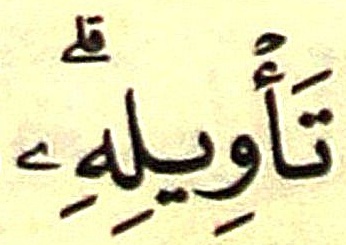 تَأْوِيلِهِۦۗ